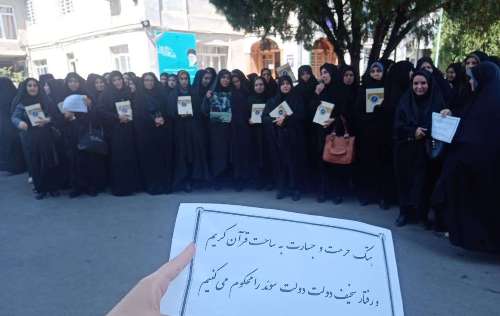 هتک حرمت و جسارت به ساحت قرآن کریم
و رفتار سخیف دولت دولت سوئد را محکوم می کنیم